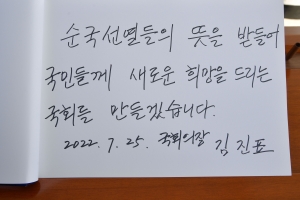 순국선열들의 뜻을 받들어
국민들께 새로운 희망을 드리는
국회를 만들겠습니다.
2022. 7. 25. 국회의장 김진표